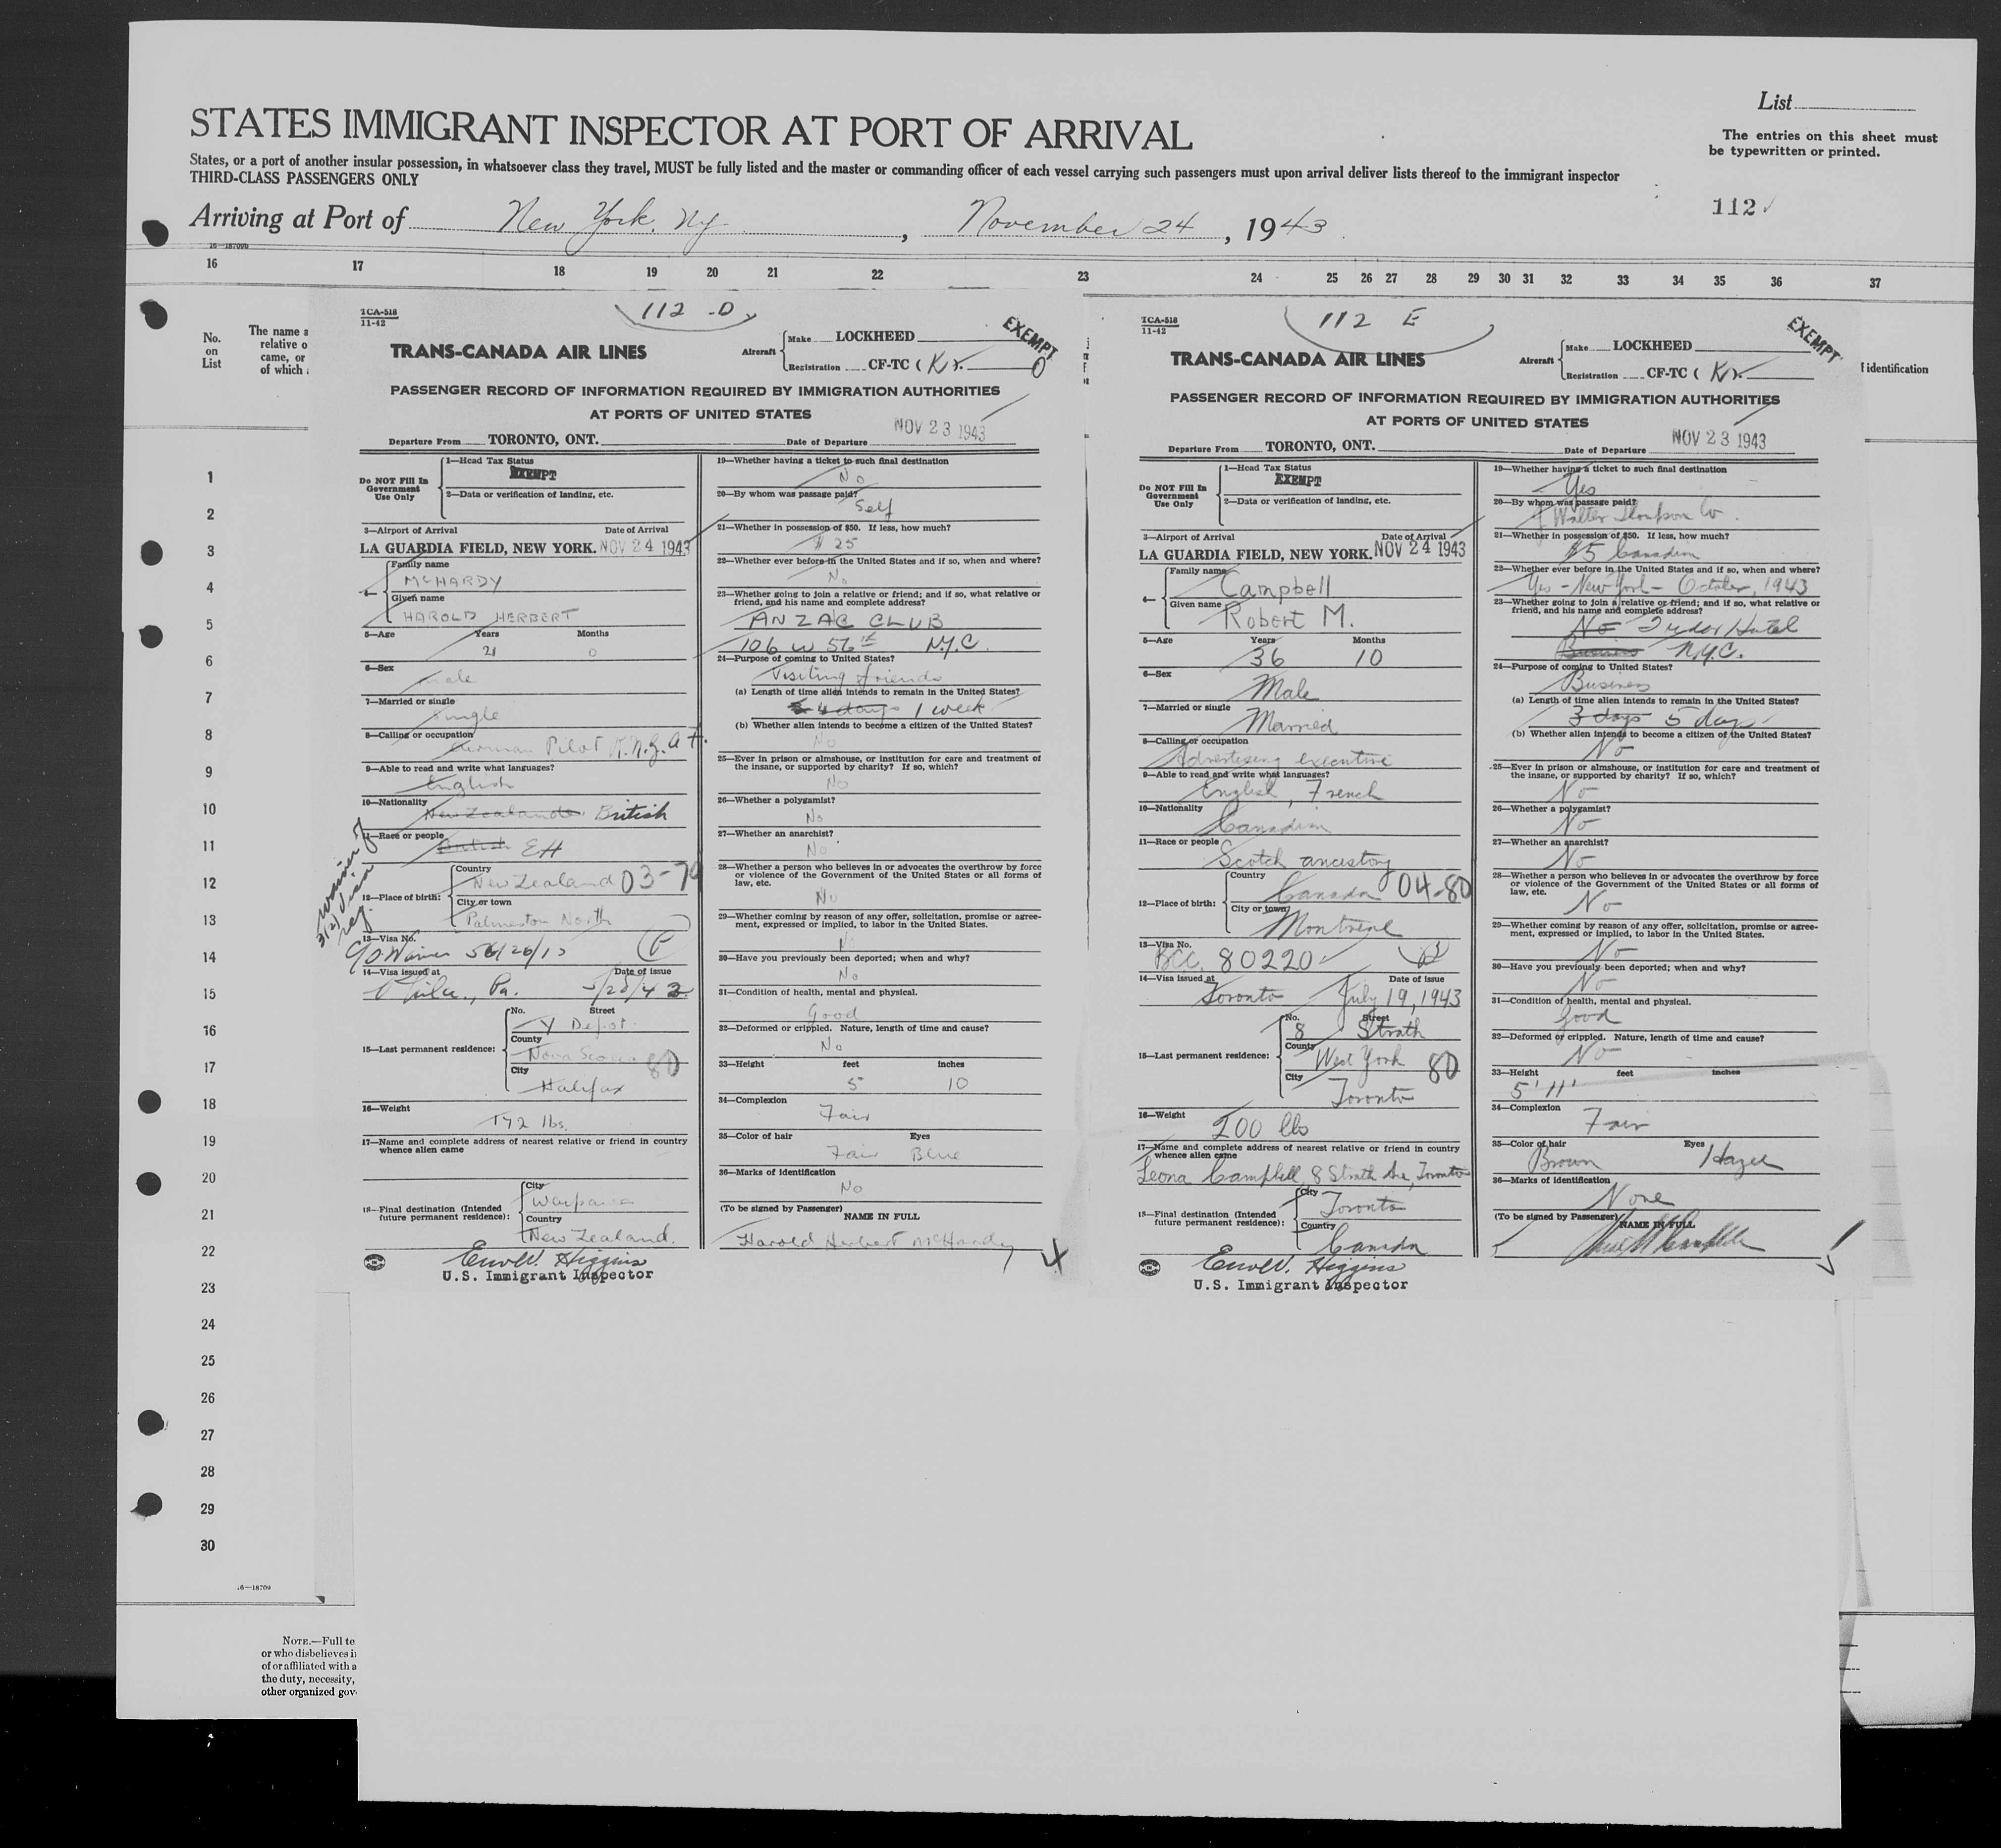 STATES IMMIGRANT INSPECTOR AT PORT OF ARRIVAL
List
The entries on this sheet must
be typewritten or printed.
States, or a port of another insular possession, in whatsoever class they travel, MUST be fully listed and the master or commanding officer of each vessel carrying such passengers must upon arrival deliver lists thereof to the immigrant inspector
THIRD-CLASS PASSENGERS ONLY
112
Arriving at Port of New York. Ny. , November 24 , 1943
16-18709b
16 17 18 19 20 21 22 23 24 25 26 27 28 29 30 31 32 33 34 35 36 37
No.
on
List
The name a
relative o
came, or
of which
f identification
1
2
3
4
5
6
7
8
9
10
11
12
13
14
15
16
17
18
19
20
21
22
23
24
25
26
27
28
29
30
16-18709
NOTE.—Full te
or who disbelieves i
of or affiliated with a
the duty, necessity,
other organized gov
TCA-518
11-42
112 D
EXEMPT
TRANS-CANADA AIR LINES
Aircraft
Make LOCKHEED
Registration CF-TC (K).
PASSENGER RECORD OF INFORMATION REQUIRED BY IMMIGRATION AUTHORITIES
AT PORTS OF UNITED STATES
NOV 23 1943
Departure From TORONTO, ONT. Date of Departure
Do NOT Fill In
Government
Use Only
1—Head Tax Status
EXEMPT
2—Data or verification of landing, etc.
3—Airport of Arrival Date of Arrival
LA GUARDIA FIELD, NEW YORK. NOV 24 1943
4—
Family name
McHARDY
Given name
HAROLD HERBERT
5—Age Years Months
21 0
6—Sex
Male
7—Married or single
Single
8—Calling or occupation
Airman Pilot R.N.Z.A.F.
9—Able to read and write what languages?
English
10—Nationality
New Zealander British
11—Race or people
British EH
Waiver of
3(2) Visa
reg.
12—Place of birth:
Country
New Zealand 03-79
City or town
Palmerston North
13—Visa No.
14—Visa issued at Date of issue
Phila., Pa. 5/20/43
15—Last permanent residence:
No. Street
Y Depot
County
Nova Scotia 80
City
Halifax
16—Weight
172 lbs.
17—Name and complete address of nearest relative or friend in country
whence alien came
18—Final destination (Intended
future permanent residence):
City
Country
New Zealand.
U.S. Immigrant Inspector
19—Whether having a ticket to such final destination
No
20—By whom was passage paid?
Self
21—Whether in possession of $50. If less, how much?
$ 25
22—Whether ever before in the United States and if so, when and where?
No
23—Whether going to join a relative or friend; and if so, what relative or
friend, and his name and complete address?
ANZAC CLUB
106 W 56th N.Y.C.
24—Purpose of coming to United States?
Visiting friends
(a) Length of time alien intends to remain in the United States?
4 days 1 week
(b) Whether alien intends to become a citizen of the United States?
No
25—Ever in prison or almshouse, or institution for care and treatment of
the insane, or supported by charity? If so, which?
No
26—Whether a polygamist?
No
27—Whether an anarchist?
No
28—Whether a person who believes in or advocates the overthrow by force
or violence of the Government of the United States or all forms of
law, etc.
No
29—Whether coming by reason of any offer, solicitation, promise or agree-
ment, expressed or implied, to labor in the United States.
No
30—Have you previously been deported; when and why?
No
31—Condition of health, mental and physical.
Good
32—Deformed or crippled. Nature, length of time and cause?
No
33—Height feet inches
5 10
34—Complexion
Fair
35—Color of hair Eyes
Fair Blue
36—Marks of identification
No
(To be signed by Passenger)
NAME IN FULL
Harold Herbert McHardy
TCA-518
11-42
112 E
EXEMPT
TRANS-CANADA AIR LINES
Aircraft
Make LOCKHEED
Registration CF-TC (K).
PASSENGER RECORD OF INFORMATION REQUIRED BY IMMIGRATION AUTHORITIES
AT PORTS OF UNITED STATES
NOV 23 1943
Departure From TORONTO, ONT. Date of Departure
Do NOT Fill In
Government
Use Only
1—Head Tax Status
EXEMPT
2—Data or verification of landing, etc.
3—Airport of Arrival Date of Arrival
LA GUARDIA FIELD, NEW YORK. NOV 24 1943
4—
Family name
Campbell
Given name
Robert M.
5—Age Years Months
36 10
6—Sex
Male
7—Married or single
Married
8—Calling or occupation
Advertising executive
9—Able to read and write what languages?
English, French
10—Nationality
Canadian
11—Race or people
Scotch ancestory
12—Place of birth:
Country
Canada 04-80
City or town
Montreal
13—Visa No.
BCC. 80220
14—Visa issued at Date of issue
Toronto July 19, 1943
15—Last permanent residence:
No. Street
8 Strath
County
West York 80
City
Toronto
16—Weight
200 lbs
17—Name and complete address of nearest relative or friend in country
whence alien came
Leona Campbell, 8 Strath Ave, Toronto
18—Final destination (Intended
future permanent residence):
City
Toronto
Country
Canada
U.S. Immigrant Inspector
19—Whether having a ticket to such final destination
Yes
20—By whom was passage paid?
J Walter Thompson Co.
21—Whether in possession of $50. If less, how much?
Canadian
22—Whether ever before in the United States and if so, when and where?
Yes - New York - October, 1943
23—Whether going to join a relative or friend; and if so, what relative or
friend, and his name and complete address?
No Tudor Hotel
Business N.Y.C.
24—Purpose of coming to United States?
Business
(a) Length of time alien intends to remain in the United States?
3 days 5 days
(b) Whether alien intends to become a citizen of the United States?
No
25—Ever in prison or almshouse, or institution for care and treatment of
the insane, or supported by charity? If so, which?
No
26—Whether a polygamist?
No
27—Whether an anarchist?
No
28—Whether a person who believes in or advocates the overthrow by force
or violence of the Government of the United States or all forms of
law, etc.
No
29—Whether coming by reason of any offer, solicitation, promise or agree-
ment, expressed or implied, to labor in the United States.
No
30—Have you previously been deported; when and why?
No
31—Condition of health, mental and physical.
Good
32—Deformed or crippled. Nature, length of time and cause?
No
33—Height feet inches
5' 11"
34—Complexion
Fair
35—Color of hair Eyes
Brown Hazel
36—Marks of identification
None
(To be signed by Passenger)
NAME IN FULL